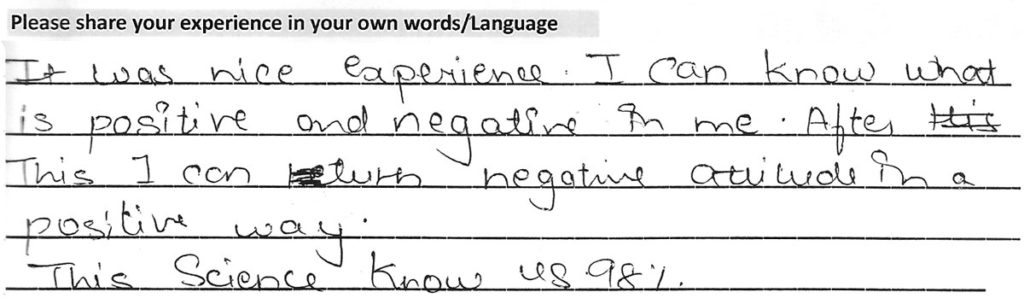 Please share your experience in your own words/Language
It was nice experience. I can know what
is positive and negative in me. After
This I can turn negative attitude in a
positive way.
This Science know us 98%.